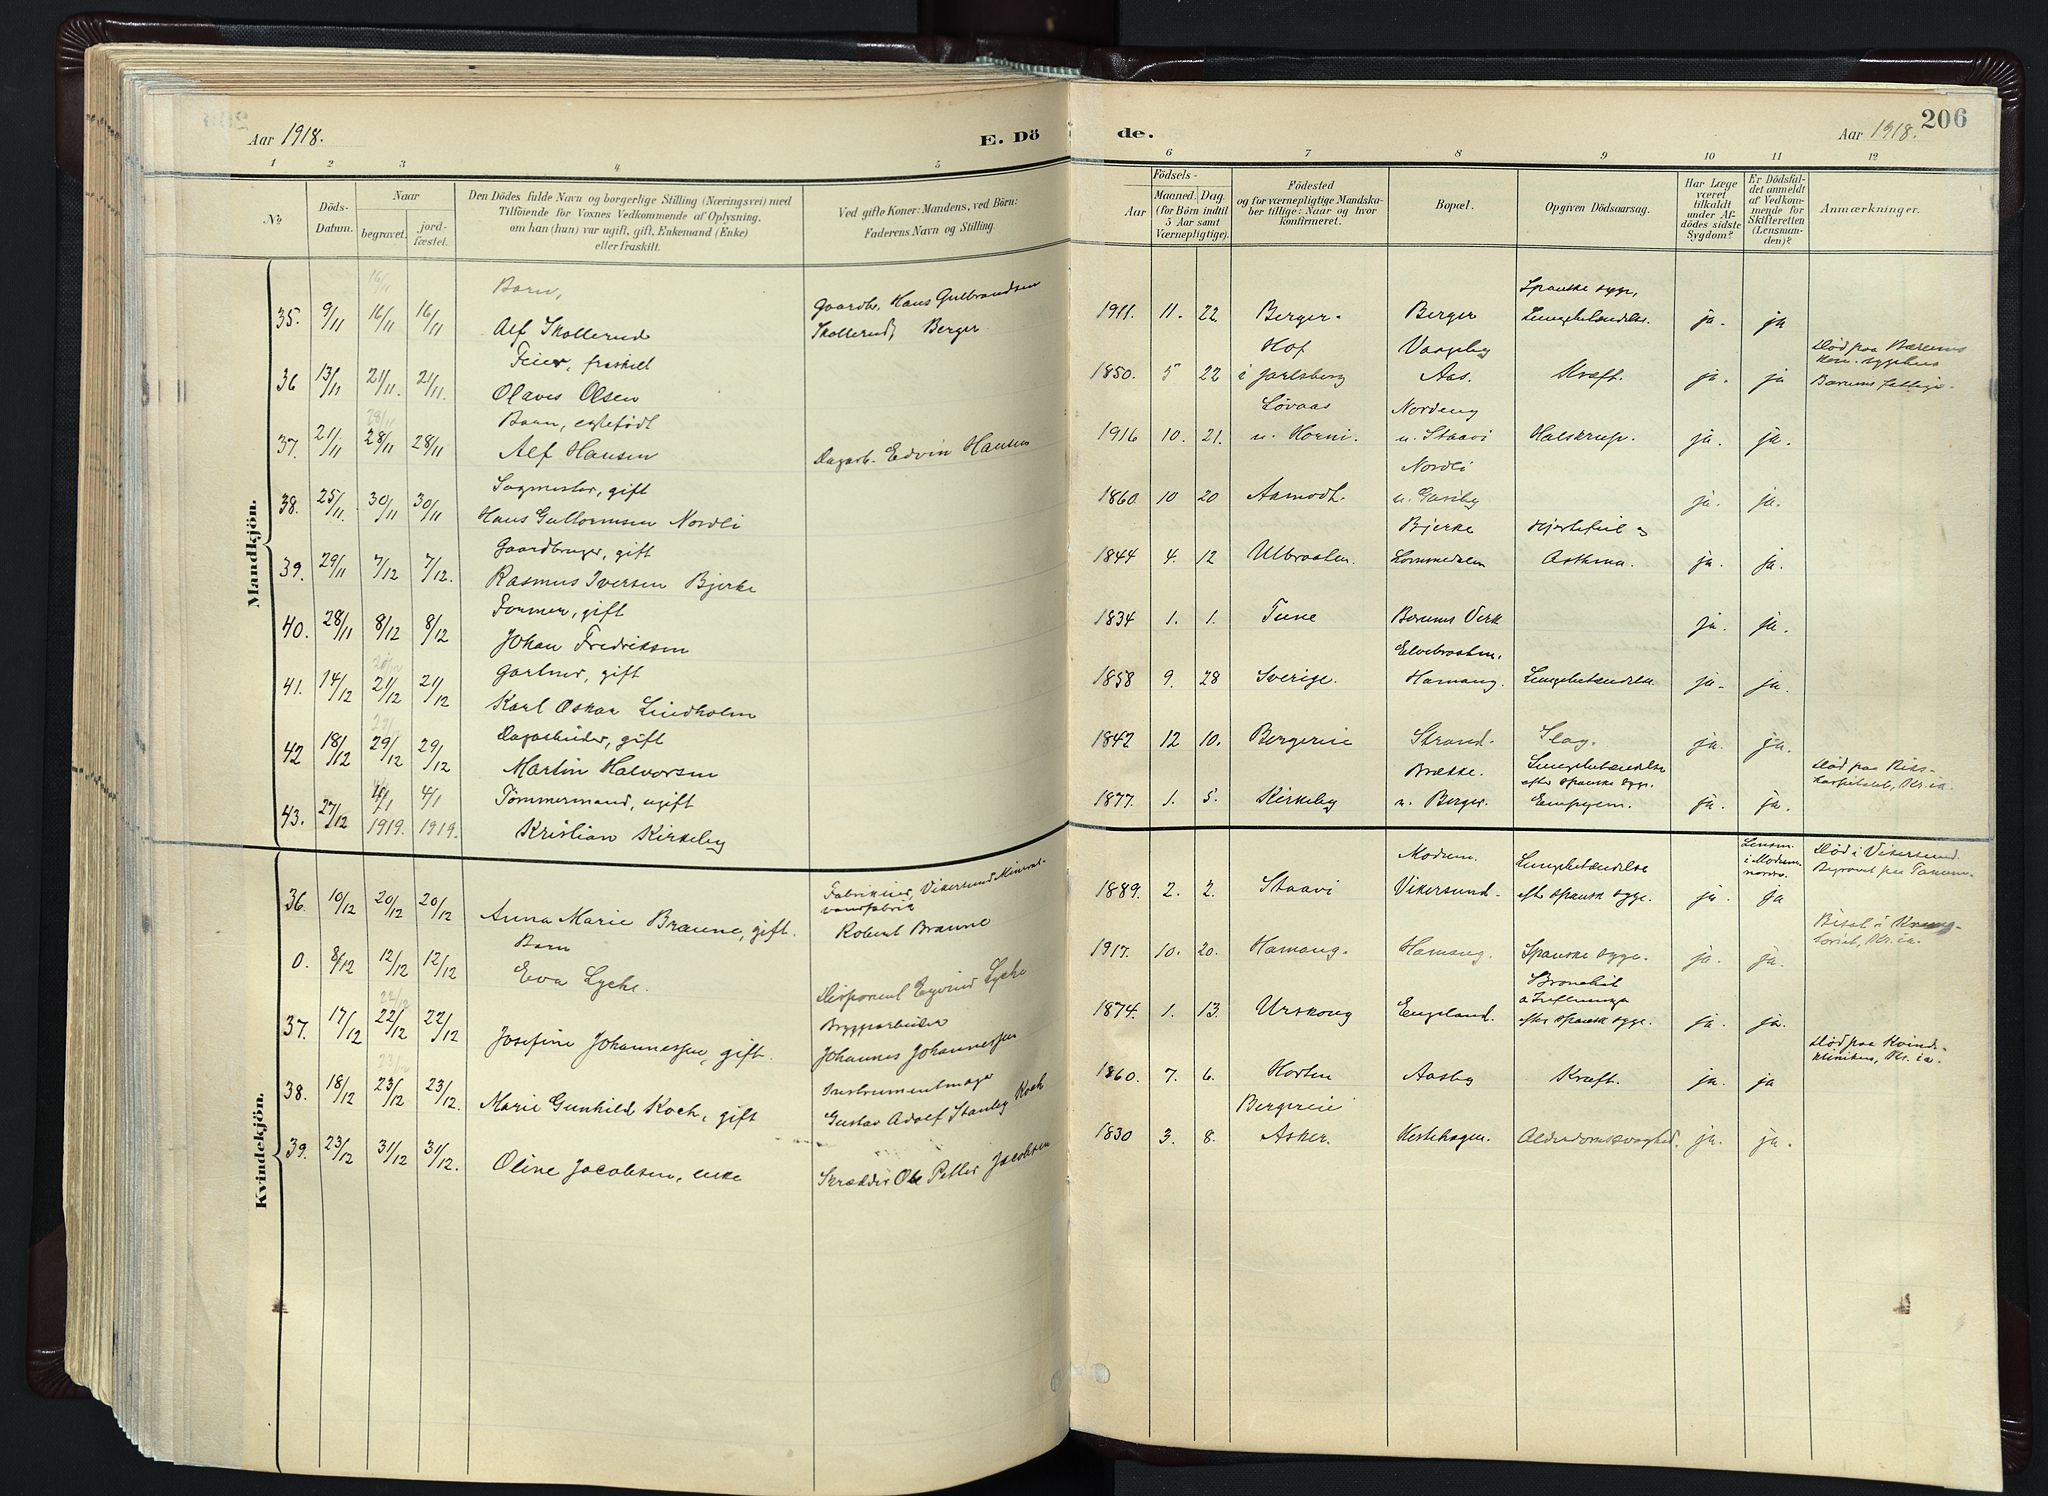 206
Aar 1918.
E. Dö
de.
Aar 1918.
1 2 3 4 5 6 7 8 9 10 11 12
No
Döds-
Datum.
Naar
begravet.
jord-
fæstet.
Den Dödes fulde Navn og borgerlige Stilling (Næringsvei) med
Tilföiende for Voxnes Vedkommende af Oplysning,
om han (hun) var ugift, gift, Enkemand (Enke)
eller fraskilt.
Ved gifte Koner: Mandens, ved Börn:
Faderens Navn og Stilling.
Födsels-
Aar
Maaned.
Dag.
(for Börn indtil
5 Aar samt
Værnepligtige).
Födested
og for værnepligtige Mandska-
ber tillige: Naar og hvor
konfirmeret.
Bopæl.
Opgiven Dödsaarsag.
Har Læge
været
tilkaldt
under Af-
dödes sidste
Sygdom?
Er Dödsfal-
det anmeldt
af Vedkom-
mende for
Skifteretten
(Lensman-
den)?
Anmærkninger.
Mandkjön.
16/11 Barn, Gaardbr. Hans Gulbrandsen Spanske syge,
35. 9/11 16/11 16/11 Alf Skollerud Skollerud, Berger 1911. 11. 22 Berger. Berger Lungebetændelse. ja. ja
Feier, fraskilt Hof Vangeby Død paa Bærums
36 13/11 21/11 21/11. Olaves Olsen 1850. 5 22 i Jarlsberg Aas. Kræft. ja. ja kom. sygehus
28/11 Barn, egtefødt Løvaas Nordeng
37. 21/11 28/11 28/11 Alf Hansen Dagarb. Edvin Hansen 1916 10. 21. u. Horni. u. Staavi Halskrup. ja. ja.
Sagmester, gift Nordli
38. 25/11. 30/11 30/11 Hans Guttormsen Nordli 1860. 10 20 Aamodt. ja. ja.
Gaardbruger, gift Bjerke Hjertefeil og
39. 29/11 7/12 7/12. Rasmus Iversen Bjerke 1844 4. 12 Ulbraaten. Lommedalen Asthma. ja. ja.
Former, gift
40. 28/11 8/12 8/12 Johan Fredriksen 1834 1. 1. Tune Bærums Verk ja. ja.
20/12 Gartner, gift Elvebraaten.
41. 14/12 21/12 21/12 Karl Oskar Lindholm 1858 9. 28 Sverige. Hamang. Lungebetændelse ja. ja.
Dagarbeider, gift
42 18/12 29/12 29/12 Martin Halvorsen 1842 12 10. Bergereie Strand. Slag. ja. ja.
Tømmermand, ugift Brække. Lungebetændelse Død paa Riks-
efter spanske syge. hospitalet, Kr.ia.
43. 27/12 4/1 1919. 4/1 1919. Kristian Kirkeby 1877. 1. 5. Kirkeby u. Berger. Empyem. ja. ja.
Kvindekjön.
Fabrikeier, Vikersund Mineral- Modum. Lungebetændelse Lensm. Død i Vikersund.
vandfabrik i Modum Begravet paa Tanum
36. 10/12 20/12 20/12 Anna Marie Braune, gift. Robert Braune 1889. 2. 2. Staavi Vikersund. efter spansk syge. ja. ja
Barn Bisat i Krema-
toriet, Kr.ia.
0. 8/12 12/12 12/12 Eva Lyche. Disponent Eyvind Lyche 1917. 10. 20. Hamang. Hamang. Spanske syge. ja. ja.
22/12 Bryggearbeider Bronchit
& Influenza
37. 17/12 22/12 22/12 Josefine Johannessen, gift. Johannes Johannessen 1874. 1. 13. Urskoug Engeland. efter spansk syge. ja. ja.
23/12 Instrumentmager Død paa Kvinde-
klinikken, Kr.ia.
38. 18/12 23/12 23/12. Marie Gunhild Koch, gift Gustav Adolf Stanley Koch 1860. 7. 6. Horten Aasby Kræft. ja. ja
Bergereie
39. 23/12 31/12 31/12. Oline Jacobsen, enke Skrædder Ole Petter Jacobsen 1830 3. 8. Asker. Hestehagen. Alderdomssvaghed. ja. ja.